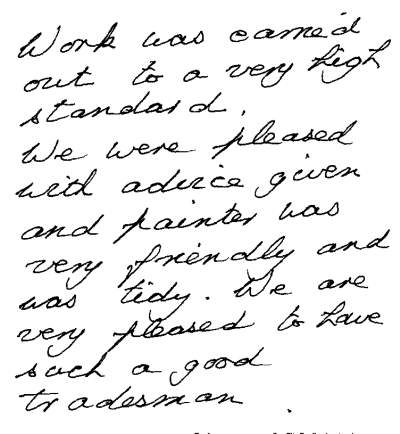 Work was carried
out to a very high
standard.
We were pleased
with advice given
and painter was
very friendly and
was tidy. We are
very pleased to have
such a good
tradesman.